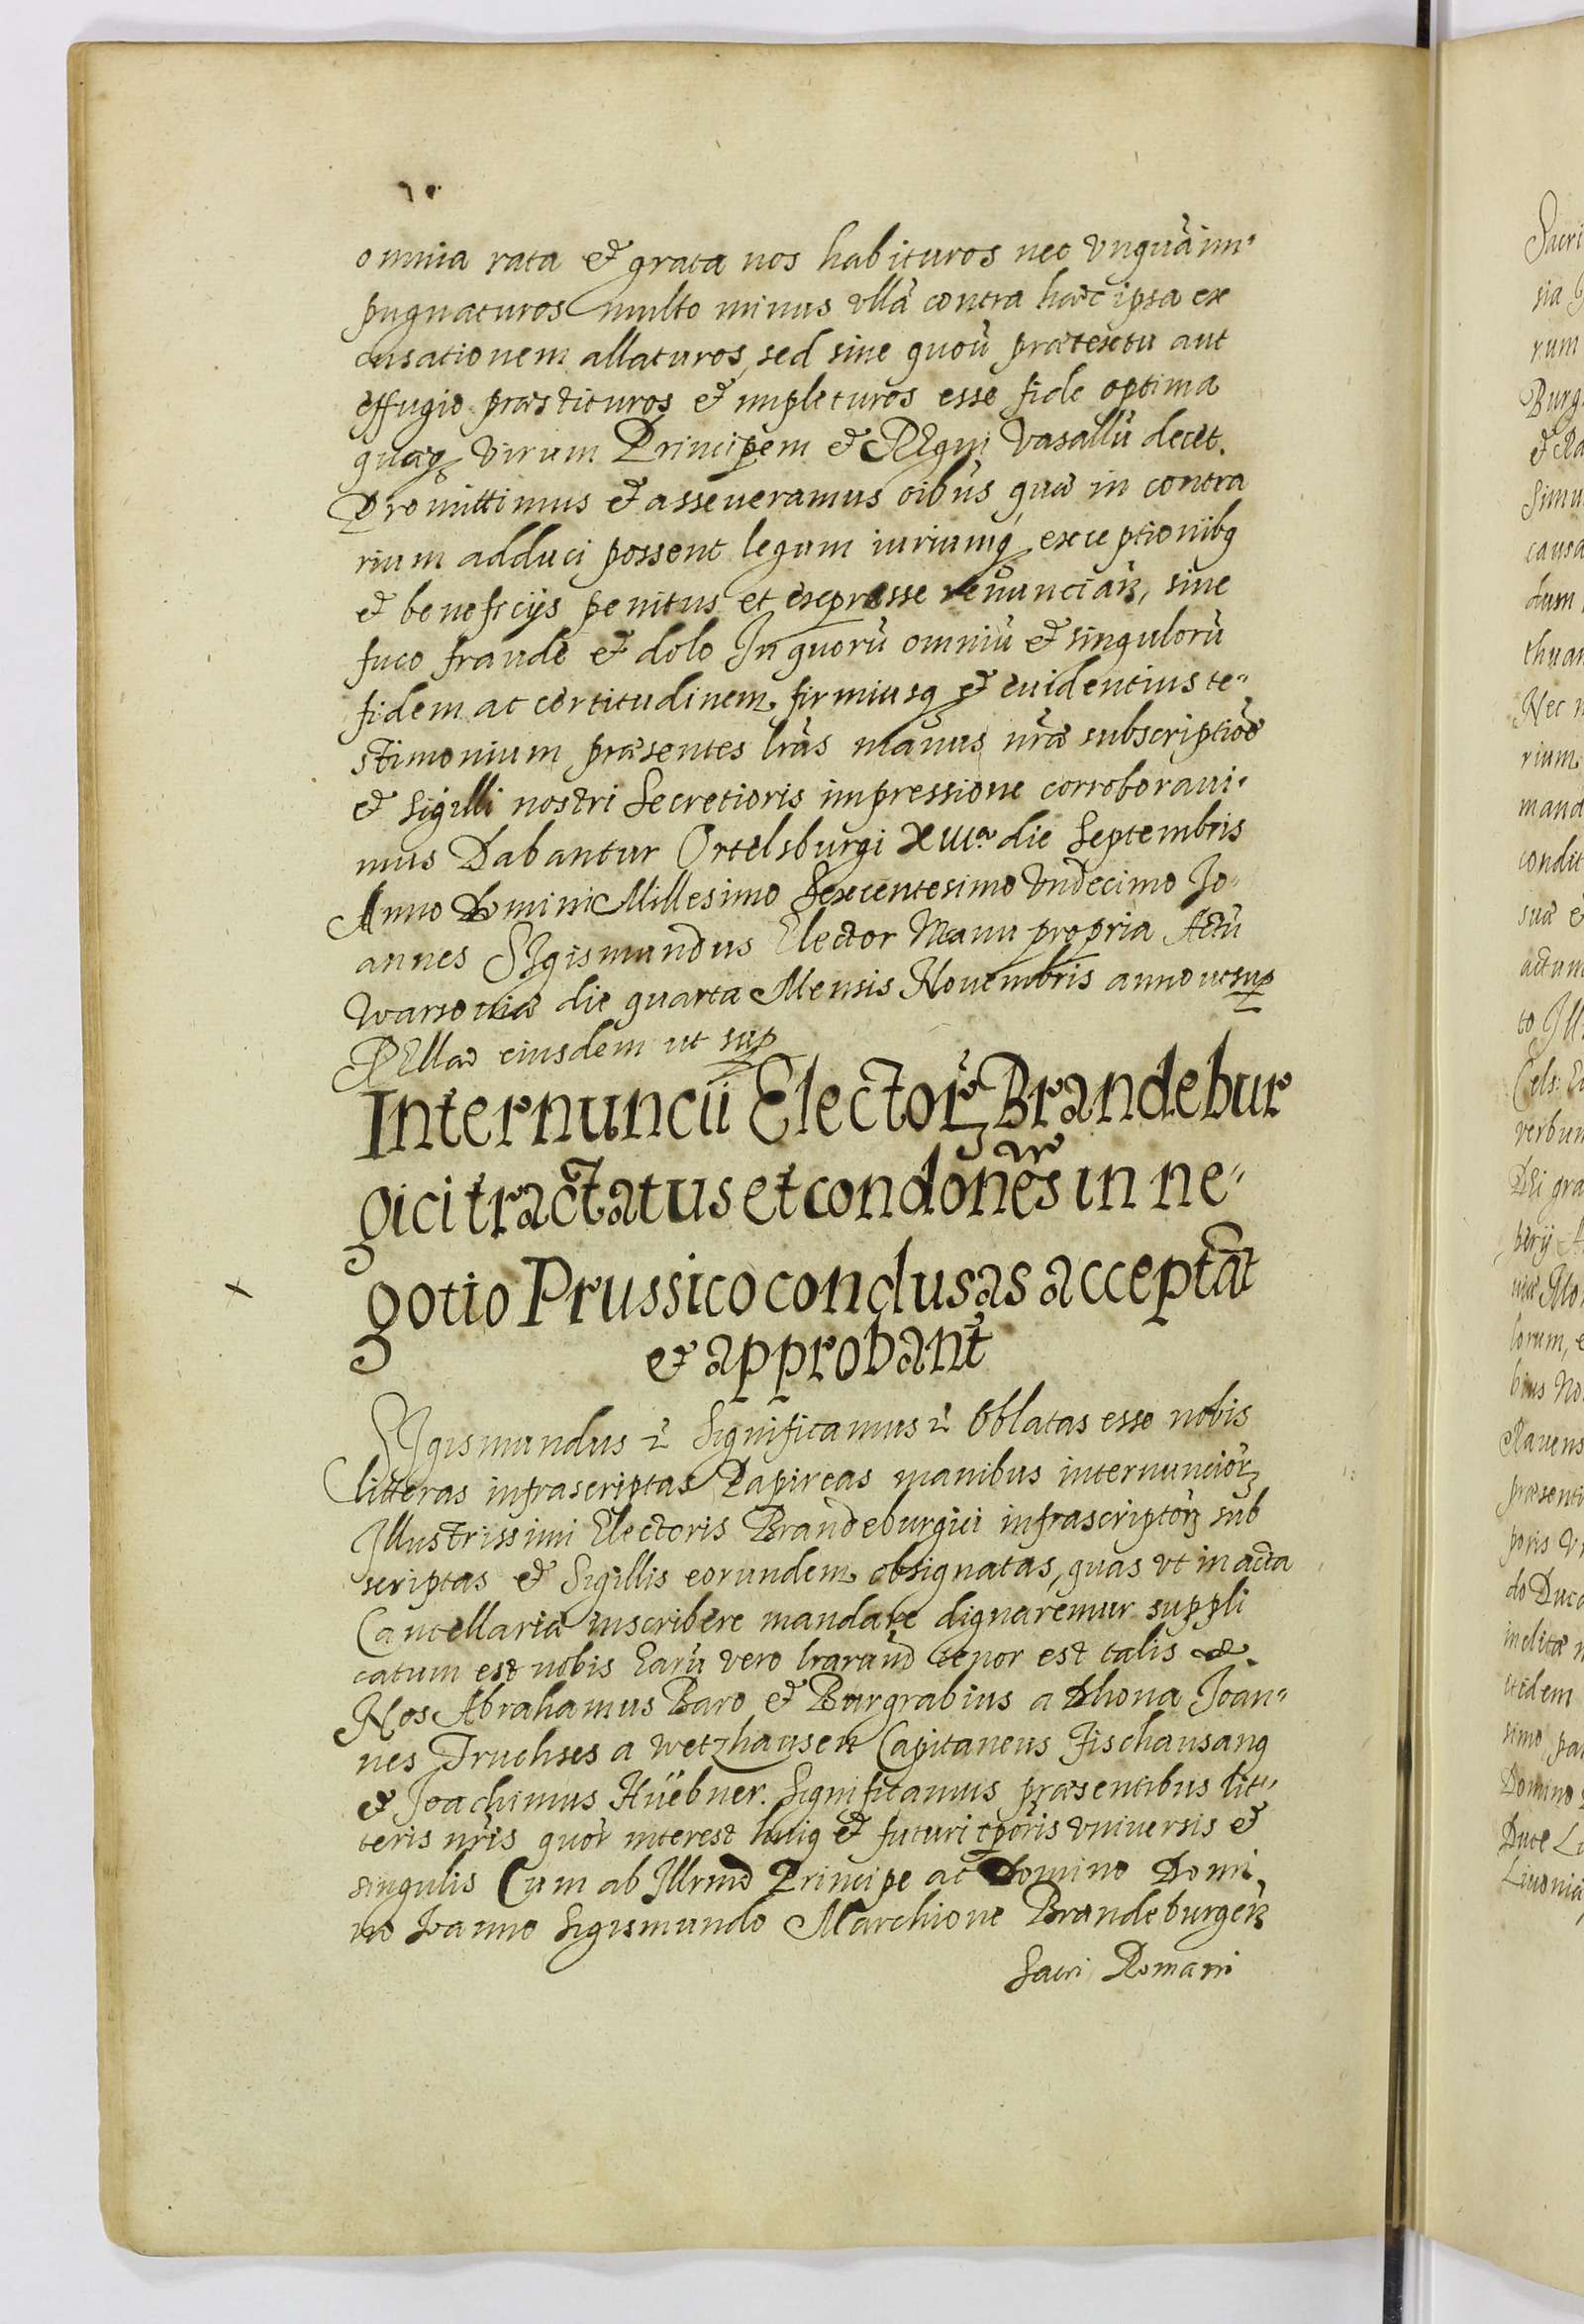 omnia rata et grata nos habituros nec vnquā im-
pugnaturos multo minus vllā contra haec ipsa ex
cusationem allaturos, sed sine quoū praetextu aut
effugio praestituros et impleturos esse fide optima
quaq virum Principem et REgni Vasallū decet.
Promittimus et asseueramus oībus quae in contra
rium adduci possent legum iuriumq exceptionibq
et beneficijs penitus et expresse renunciañ, sine
fuco fraude et dolo In quorū omniū et singulorū
fidem ac certitudinem, firmiusq et euidentius te-
stimonium praesentes lrās manus nrāe subscriptiōe
et sigilli nostri Secretioris impressione corroboraui-
mus Dabantur Ortelsburgi XIIIa die Septembris
Anno Domini Millesimo Sexcentesimo Vndecimo Jo-
annes SIgismundus Elector Manu propria Actū
Warsouiae die quarta Mensis Nouembris anno ut sup
RElla ciusdem ut sup
Internuncii Electoř Brandebur
gici tractatus et condōnes in ne-
gotio Prussico conclusas acceptāt
et approbant
SIgismundus ꝛ Significamus ꝛ Oblatas esse nobis
litteras infrascriptas Papireas manibus internuncioř
Illustrissimi Electoris Brandeburgici infrascriptoř sub
scriptas et Sigillis eorundem obsignatas, quas vt in acta
Cancellaria inscribere mandare dignaremur suppli
catum est nobis Earū vero lrarund tenor est talis
Nos Abrahamus Baro et Burgrabius a Dhona Joan-
nes Truchses a Wetzhausen Capitaneus Fischausang
et Joachimus Hüebner. Significamus praesentibus lit-
teris nrīs quoř interest huiq et futuri tpōris vniuersis et
singulis Cum ab Illrmo Principe ac Domino Domi-
no Joanne Sigismundo Marchione Brandeburgeñ
Sacri Romani